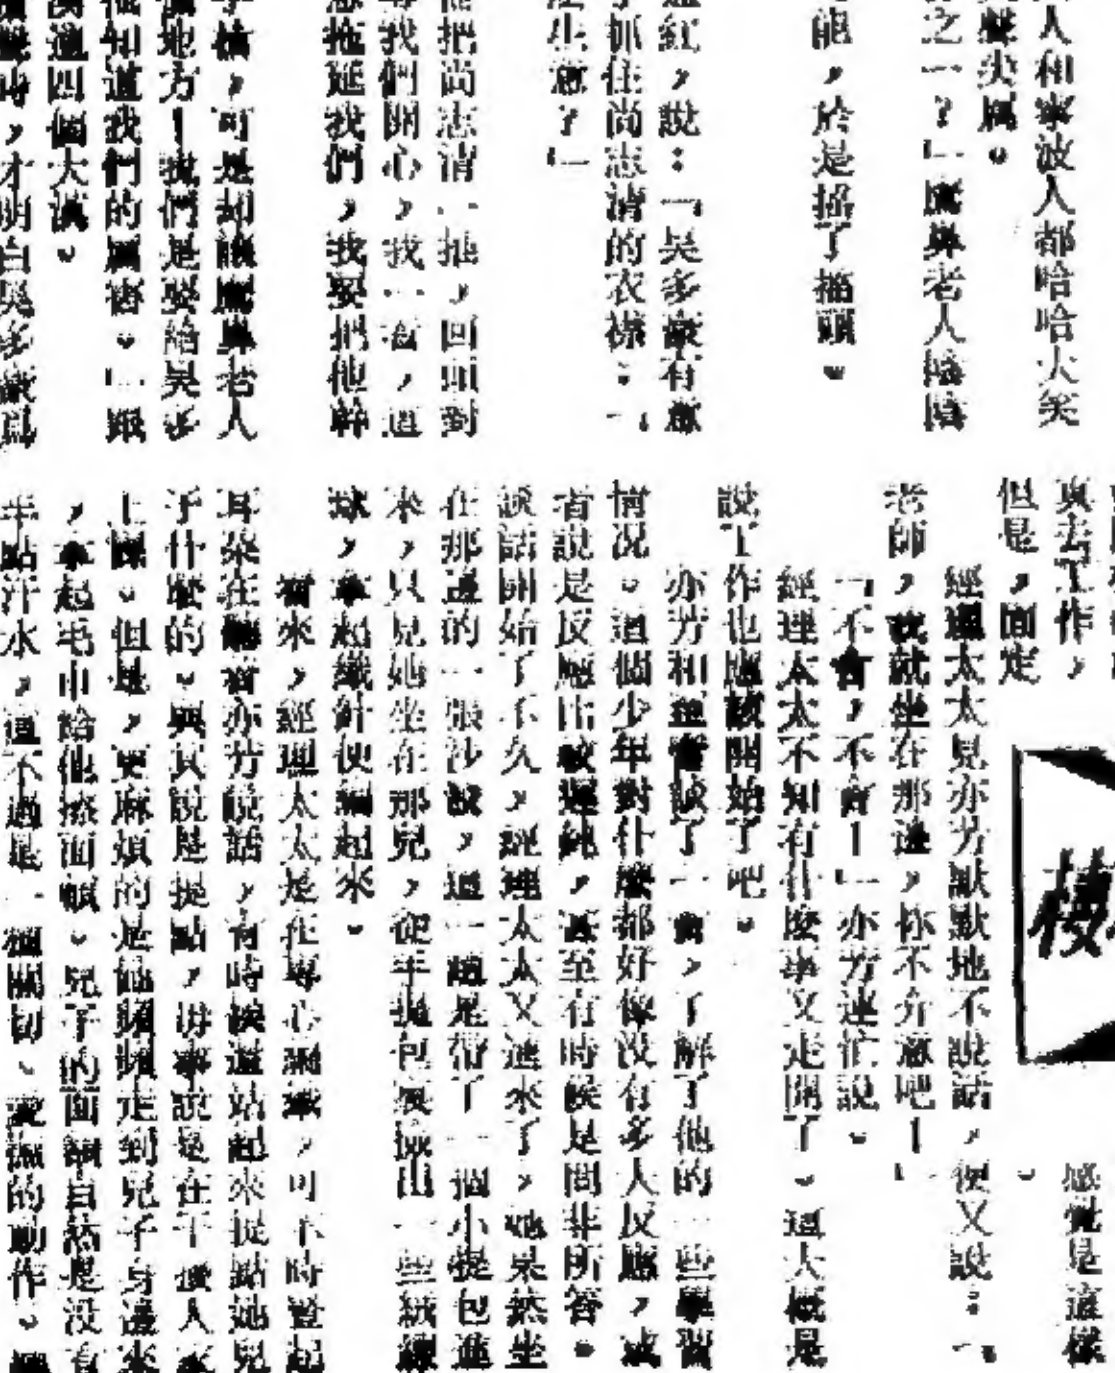 人和寧波人都哈哈大笑
聲尖厲。
之一?」鷹鼻老人陰陰
能,於是搖了搖頭。
紅,說:「吳多豪有意
抓住尚志清的衣襟:「
生意?」
把尚志清一推,回頭對
我們開心,我一看,這
拖延我們,我要把他幹
,可是却讓鷹鼻老人
地方!我們是要給吳多
知道我們的厲害。」跟
四個大漢。
時,才明白吳多豪爲
感覺是這樣
真去工作,
但是,面定
。
經理太太見亦芳默默地不說話,便又說:「
老師,我就坐在那邊,你不介意吧!」
「不會,不會!」亦芳連忙說。
經理太太不知有什麼事又走開了。這大概是
說工作也應該開始了吧。
亦芳和經實談了一會,了解了他的一些學習
情況。這個少年對什麼都好像沒有多人反應,或
者說是反應比較遲鈍,甚至有時候是問非所答。
談話開始了不久,經理太太又進來了,她果然坐
在那邊的一張沙發,這一趟是帶了一個小提包進
來,只見她坐在那兒,從手提包裏撿出一些絨線
球,拿起織針便編起來。
看來,經理太太是在專心編織,可不時豎起
耳朶在聽着亦芳說話,有時候還站起來提點她兒
子什麼的。與其說是提點,毋寧說是在干擾人家
上課。但是,更麻煩的是她頻頻走到兒子身邊來
,拿起毛巾給他擦面頰。兒子的面頰自然是沒有
半點汗水,這不過是一種關切、愛撫的動作。